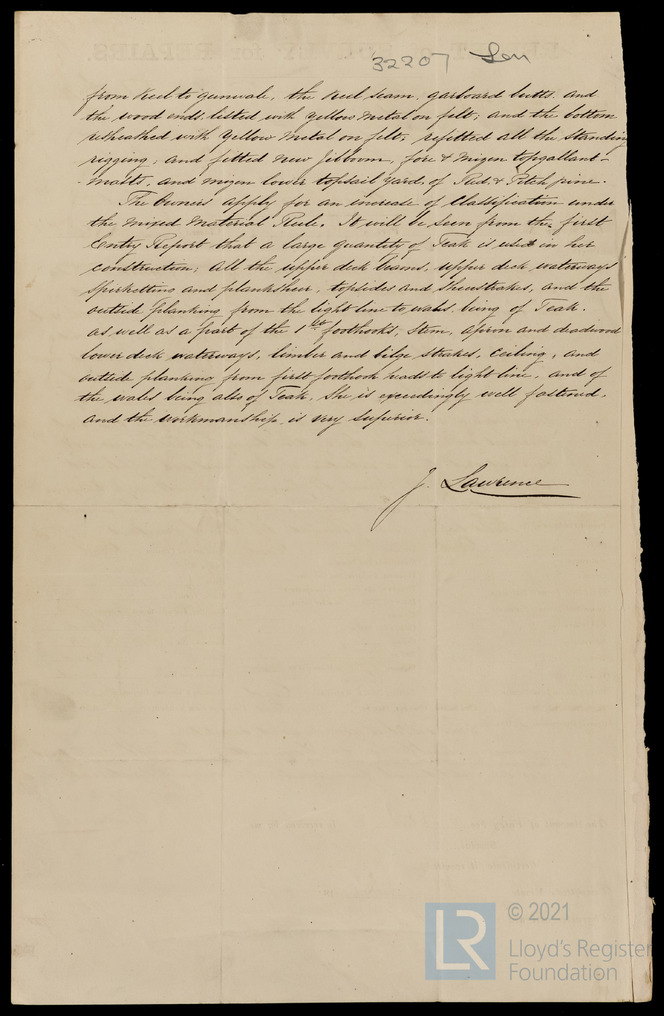 32207 Lon
from Keel to gunwale, the Keel seam, garboard butts and
the wood ends listed with yellow metal on felt; and the bottom
resheathed with yellow metal on felt; refitted all the standing
rigging, and fitted new jibboom, fore & mizen topgallant-
-masts, and mizen lower topsail yard, of Red & Pitch pine.
The Owners apply for an increase of Classification under
the Mixed Material Rule. It will be seen from the first
Entry Report that a large quantity of Teak is used in her
construction; all the upper deck beams, upper deck waterways
Spirketting and planksheer, topsides and sheerstrakes, and the
outside planking from the light line to wales being of Teak.
as well as a part of the 1st foothooks, Stem, apron and deadwood
lower deck waterways, limber and bilge strakes, ceiling, and
outside planking from first foothook heads to light line, and of
the wales being also of Teak. She is exceedingly well fastened,
and the workmanship is very superior.
J. Lawrence
© 2021
LR Lloyd's Register
Foundation